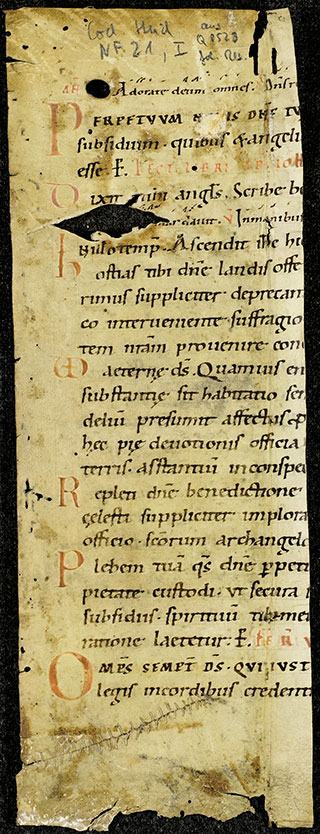 Cod. Hild.
NF. 21, I
aus
Q 8523
Adorate deum omnes.
PERPETUUM & IS DNE TU
subsidium. quibus & angeli
esse. P. LECT LIBRI AP IOH
Dixit angls. Scribe be
In manibus
In illo temp. Ascendit ihc hi
ostias tibi dne laudis offe
rimus suppliciter deprecan
co interveniente suffragio
tem nram provenire con
aeterne ds. Quamvis en
substantię sit habitatio sen
deliu presumit affectus p
hec pie devotionis officia
terris. asstantiu inconspec
Repleti dne benedictione
cęlesti suppliciter implora
officio. scorum archangelo
Plebem tuā qs dne ꝑpeti
pietate custodi. ut secura
subsidiis. spirituū tibi me
ratione laetetur. P.
OMPS SEMPT DS. QUI IUST
legis incordibus credenti